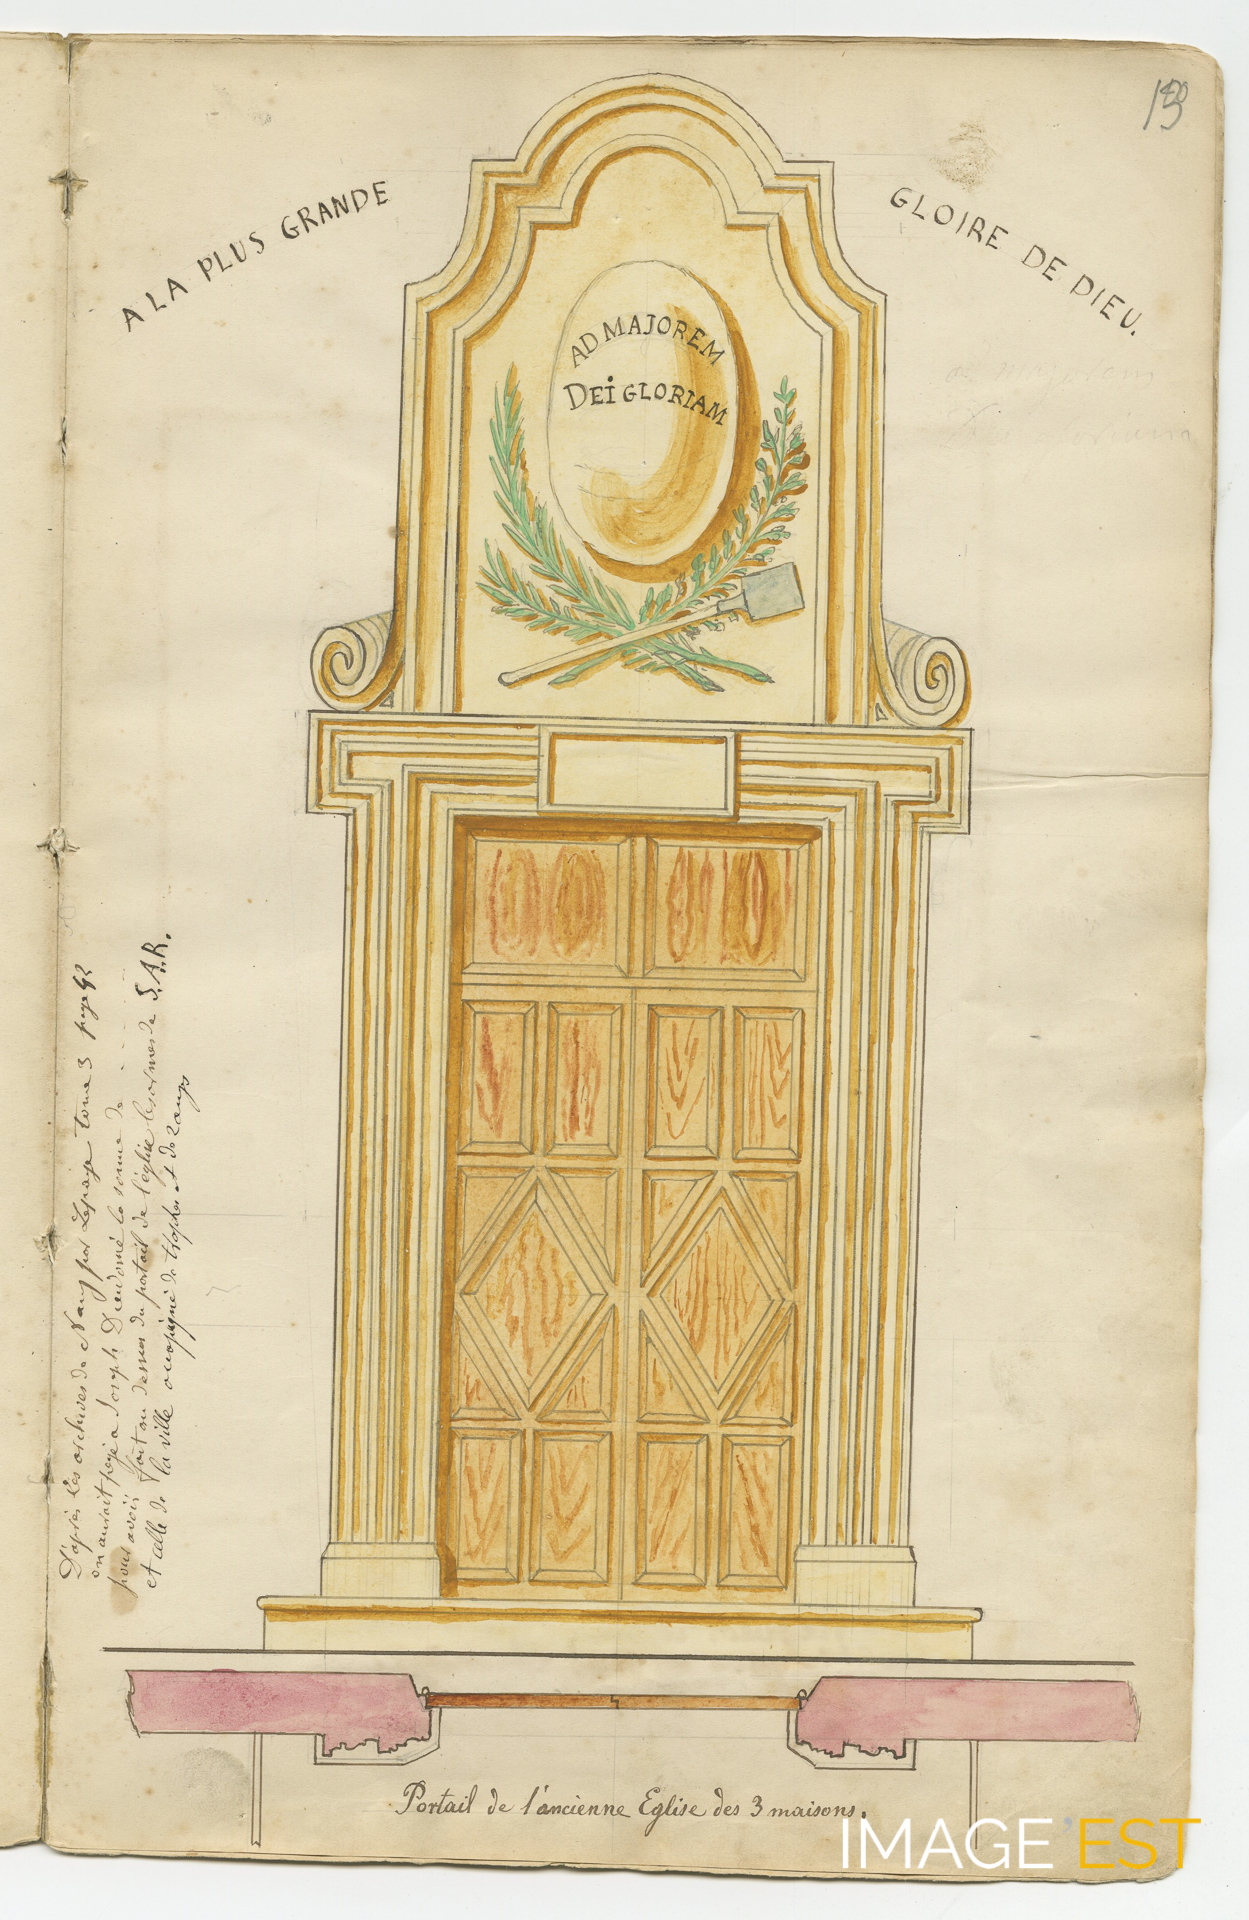 A LA PLUS GRANDE GLOIRE DE DIEU.
AD MAJOREM
DEi GLORIAM
D'après les archives de Nancy par Lepage tome 3 page
on aurait payé à Joseph Dieudonné la somme de
pour avoir fait au dessus du portail de l'église les armes de S.A.R.
et celle de la ville de trophes et de
Portail de l'ancienne Eglise des 3 maisons.
IMAGE'EST